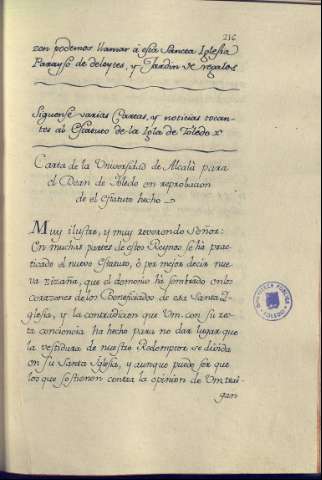 216
zon podemos llamar á esta Sancta Iglesia
Parayso de deleytes, y Jardin de regalos
Siguense varias Cartas, y noticias tocan-
tes al Estatuto de la Igla de Toledo
Carta de la Universidad de Alcalà para
el Dean de Toledo en reprobacion
de el Estatuto hecho
Muy ilustre, y muy reverendo Señor:
En muchas partes de estos Reynos se ha prac-
ticado el nuevo Estatuto, ó por mejor decir nue-
va zizaña, que el demonio ha sembrado en los
corazones de los Beneficiados de esa Santa I-
glesia, y la contradicion que Vm. con su rec-
ta conciencia ha hecho para no dar lugar que
la vestidura de nuestro Redemptor se divida
en su Santa Iglesia, y aunque puede ser que
los que sostienen contra la opinion de Vm. trai-
gan
BIBLIOTECA PUBLICA
TOLEDO